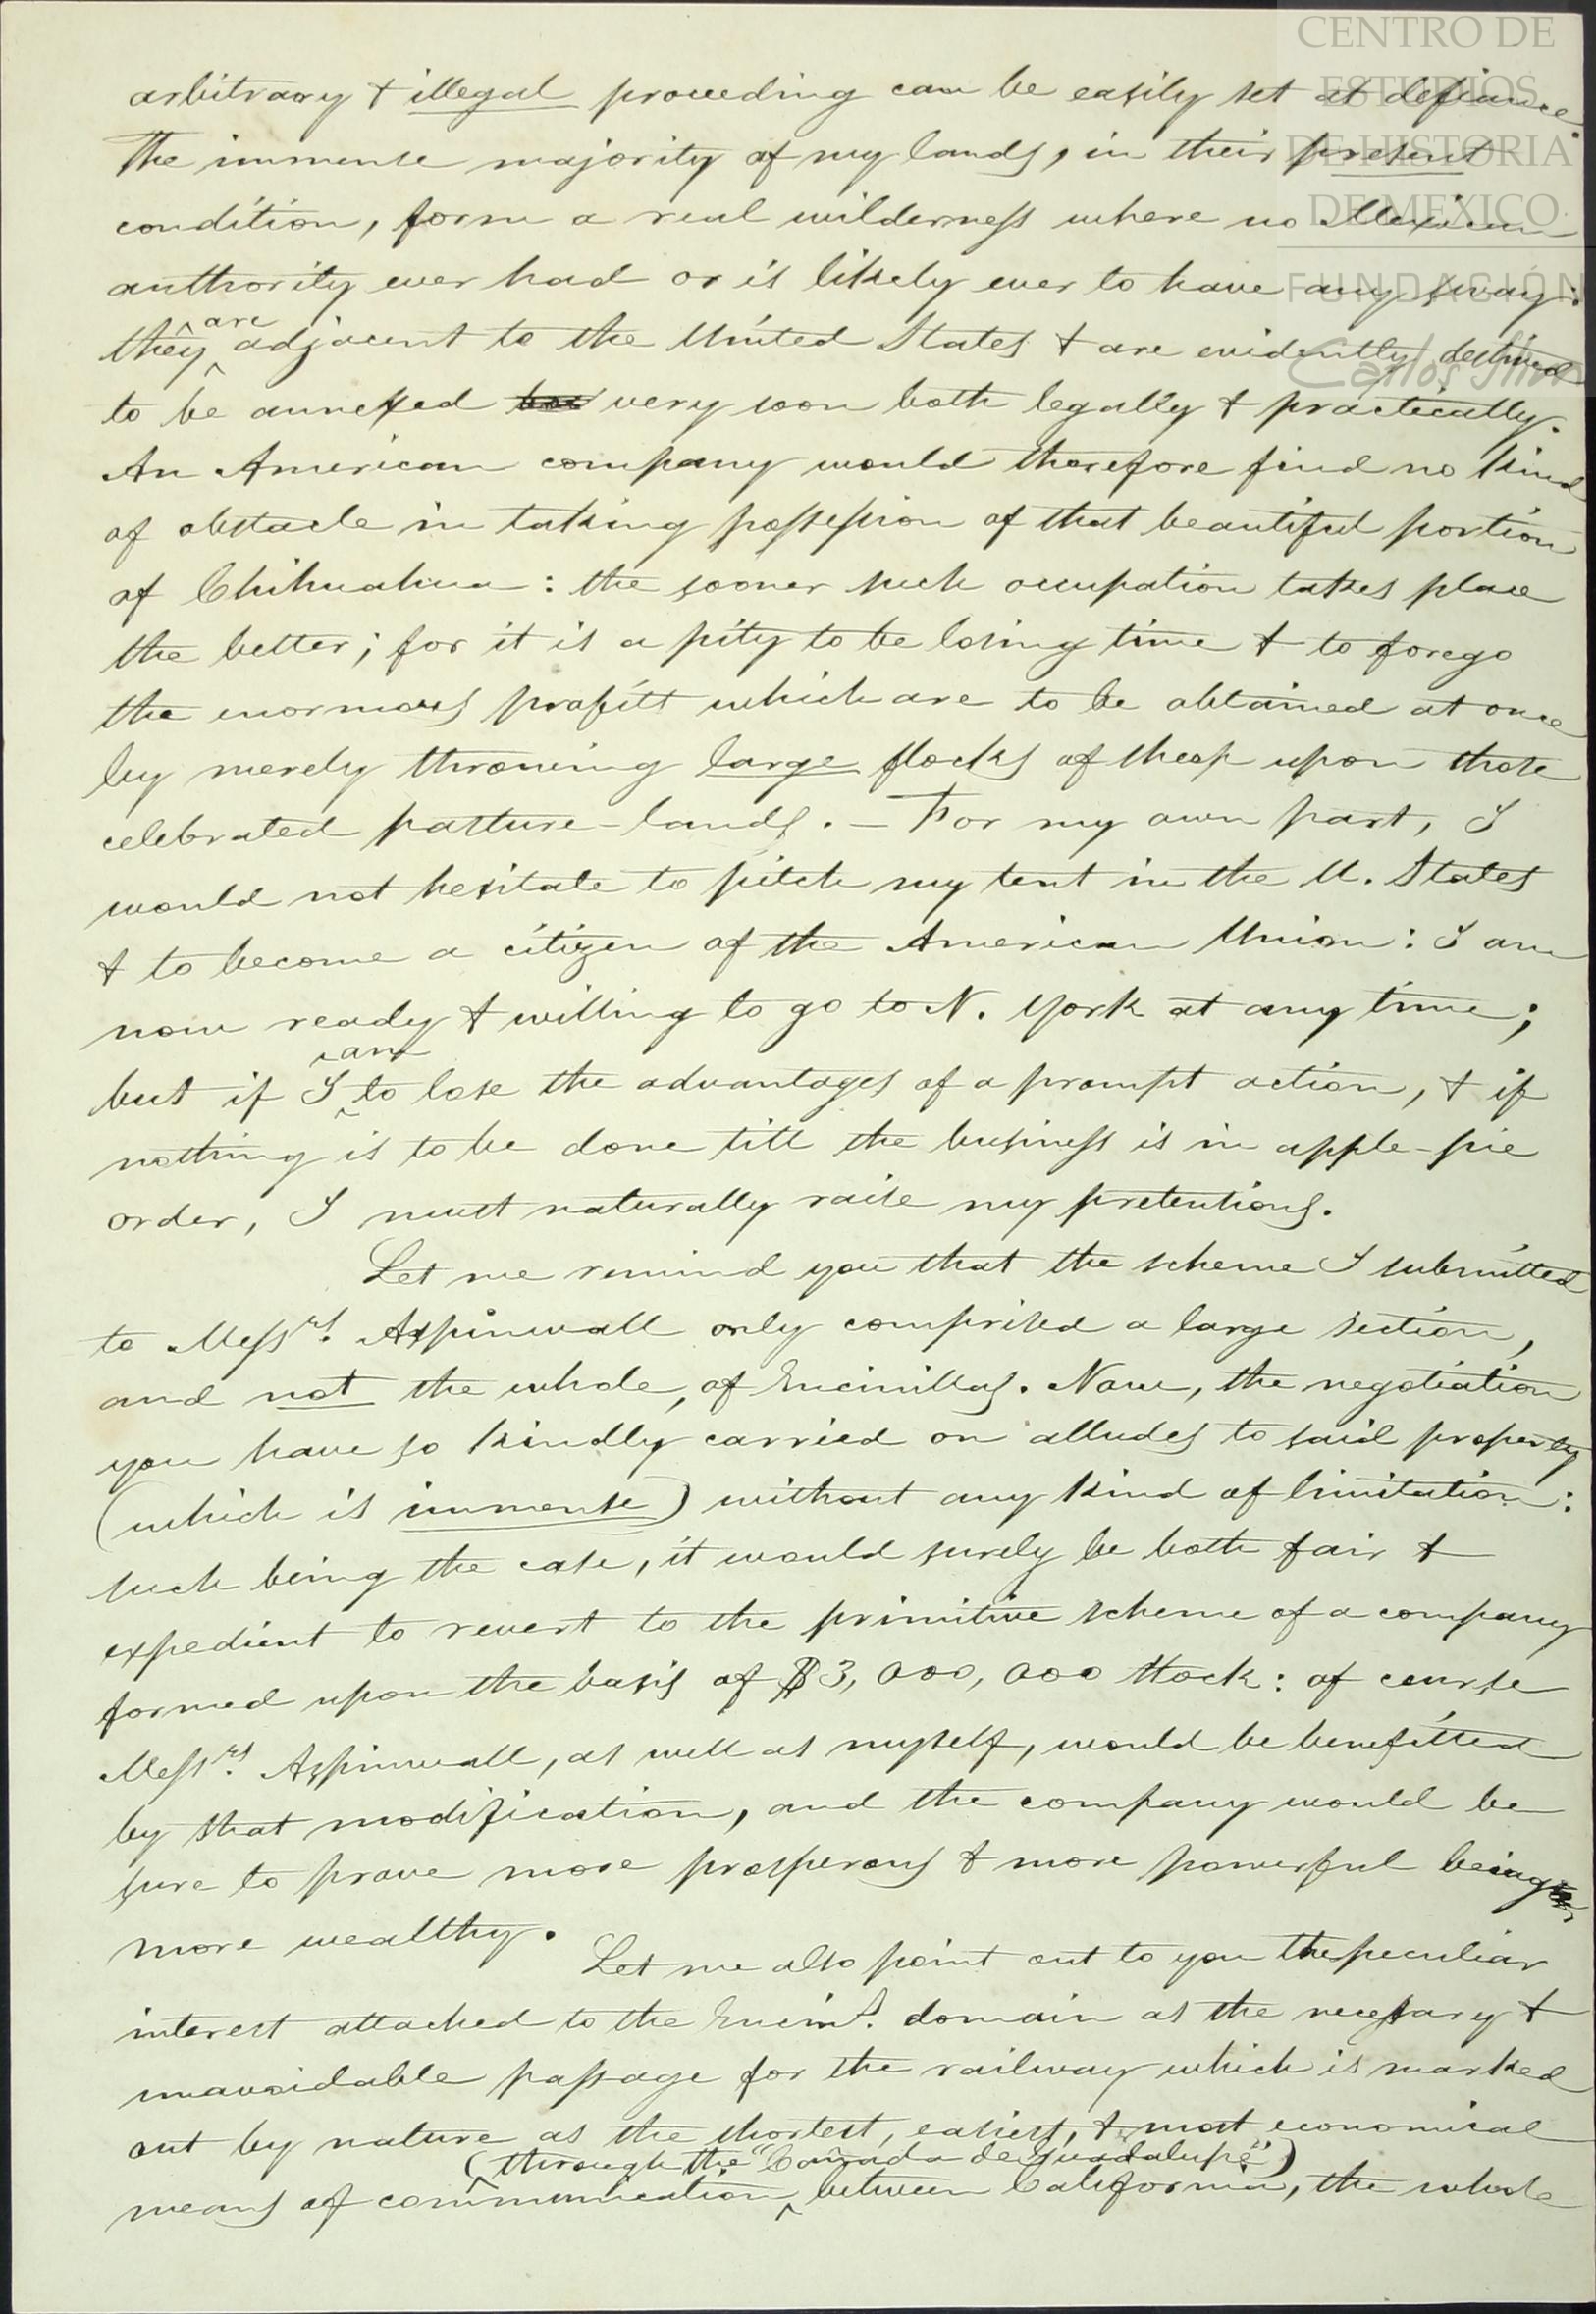 CENTRO DE
ESTUDIOS
DE HISTORIA
DE MEXICO
FUNDACIÓN
Carlos Slim
arbitrary & illegal proceeding can be easily set at defiance.
The immense majority of my lands, in their present
condition, form a real wilderness where no Mexican
authority ever had or is likely ever to have any sway:
they are adjacent to the United States & are evidently destined
to be annexed very soon both legally & practically.
An American company would therefore find no kind
of obstacle in taking possession of that beautiful portion
of Chihuahua: the sooner such occupation takes place
the better; for it is a pity to be losing time & to forego
the enormous profits which are to be obtained at once
by merely throwing large flocks of sheep upon those
celebrated pasture-lands. - For my own part, I
would not hesitate to pitch my tent in the U. States
& to become a citizen of the American Union: I am
now ready & willing to go to N. York at any time;
but if I am to lose the advantages of a prompt action, & if
nothing is to be done till the business is in apple-pie
order, I must naturally raise my pretentions.
Let me remind you that the scheme I submitted
to Messrs. Aspinwall only comprised a large section,
and not the whole, of Encinillas. Now, the negotiation
you have so kindly carried on alludes to said property
(which is immense) without any kind of limitation:
such being the case, it would surely be both fair &
expedient to revert to the primitive scheme of a company
formed upon the basis of $3,000,000 stock: of course
Messrs. Aspinwall, as well as myself, would be benefitted
by that modification, and the company would be
sure to prove more prosperous & more powerful being
more wealthy.
Let me also point out to you the peculiar
interest attached to the Encins. domain as the necessary &
unavoidable passage for the railway which is marked
out by nature as the shortest, easiest, & most economical
means of communication (through the "Cañada de Guadalupe") between California, the whole